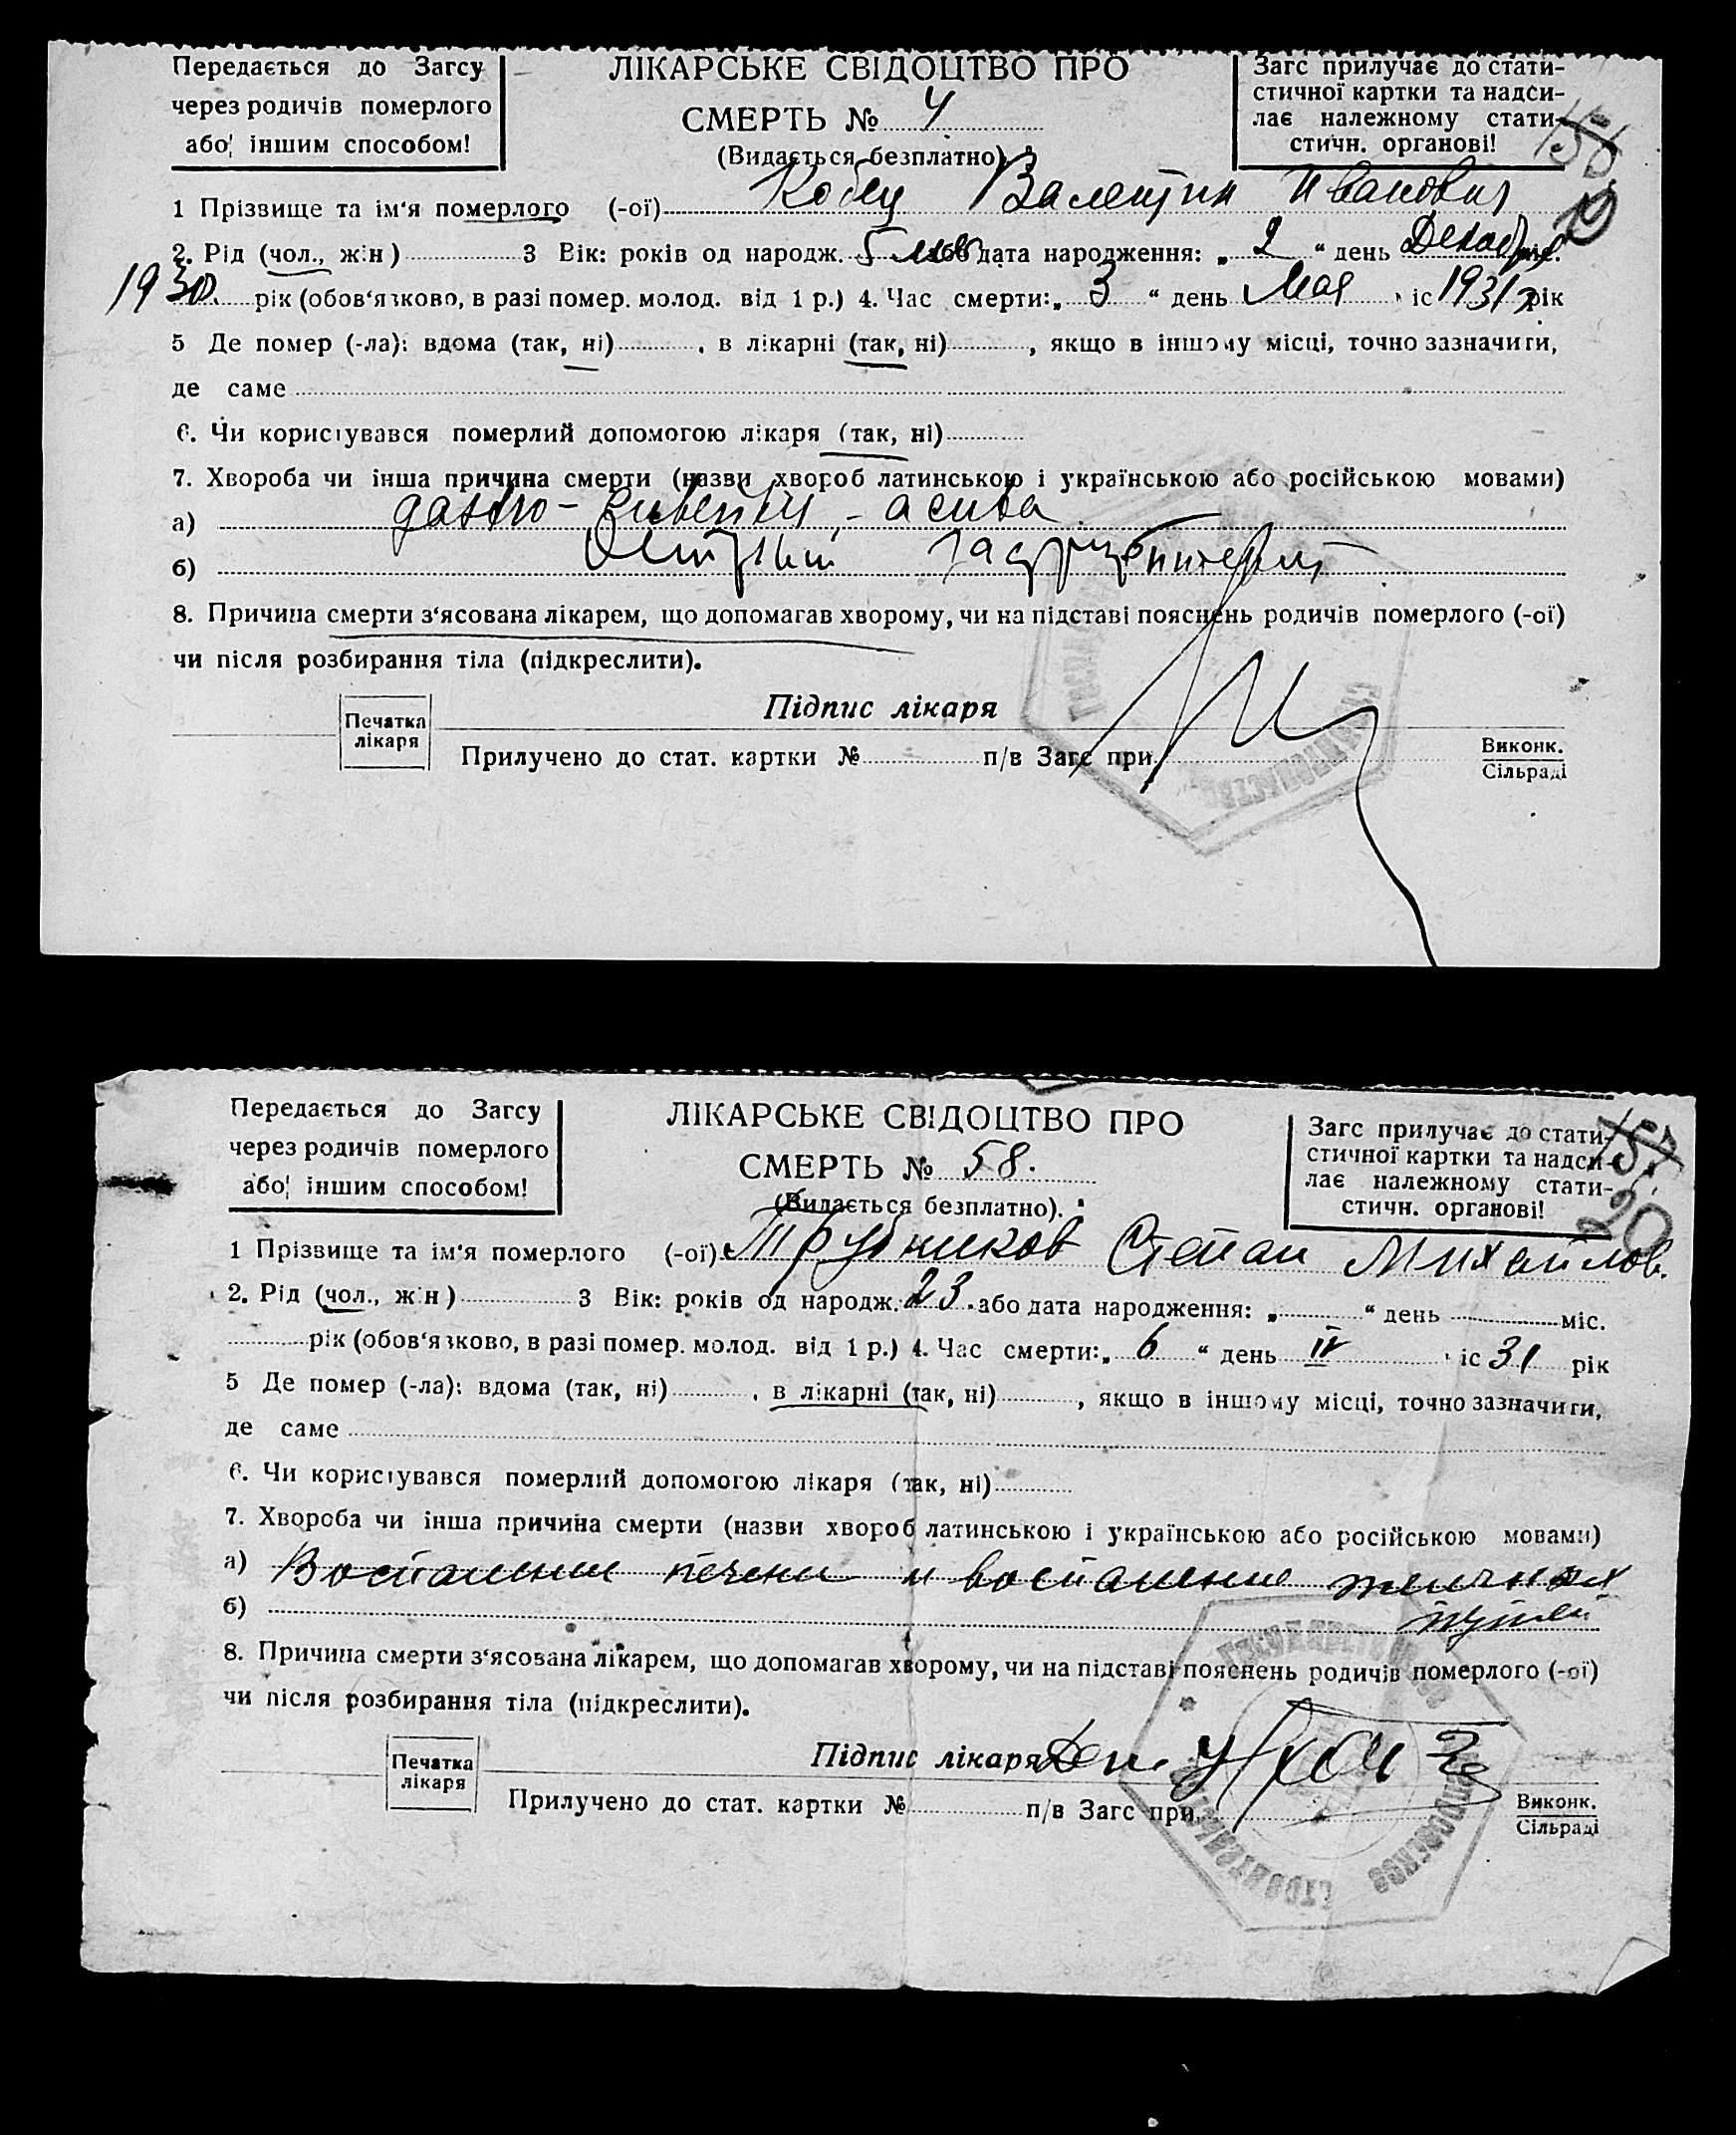 Передається до Загсу
через родичів померлого
або іншим способом!
ЛІКАРСЬКЕ СВІДОЦТВО ПРО
СМЕРТЬ № 4
(Видається безплатно)
Загс прилучає до стати-
стичної картки та надси-
лає належному стати-
стичн. органові!
19
1 Прізвище та ім'я померлого (-ої) Кобец Валентин Иванович
2. Рід (чол., жін) 3 Вік: років од народж. 5 мес або дата народження: „ 2 “ день Декабря міс.
1930. рік (обов'язково, в разі помер. молод. від 1 р.) 4. Час смерти: „ 3 “ день Мая міс 1931 рік
5 Де помер (-ла): вдома (так, ні) , в лікарні (так, ні) , якщо в іншому місці, точно зазначити,
де саме
6. Чи користувався померлий допомогою лікаря (так, ні)
7. Хвороба чи інша причина смерти (назви хвороб латинською і українською або російською мовами)
а) gastro-enteritis - acuta
б) Острый гастроэнтерит
8. Причина смерти з'ясована лікарем, що допомагав хворому, чи на підставі пояснень родичів померлого (-ої)
чи після розбирання тіла (підкреслити).
Печатка
лікаря
Підпис лікаря
Прилучено до стат. картки № п/в Загс при
Виконк.
Сільраді
Передається до Загсу
через родичів померлого
або іншим способом!
ЛІКАРСЬКЕ СВІДОЦТВО ПРО
СМЕРТЬ № 58.
(Видається безплатно).
Загс прилучає до стати-
стичної картки та надси-
лає належному стати-
стичн. органові!
157
20
1 Прізвище та ім'я померлого (-ої) Трубников Степан Михайлов.
2. Рід (чол., жін) 3 Вік: років од народж. 23 або дата народження: „ “ день міс.
рік (обов'язково, в разі помер. молод. від 1 р.) 4. Час смерти: „ 6 “ день IV міс 31 рік
5 Де помер (-ла): вдома (так, ні) , в лікарні (так, ні) , якщо в іншому місці, точно зазначити,
де саме
6. Чи користувався померлий допомогою лікаря (так, ні)
7. Хвороба чи інша причина смерти (назви хвороб латинською і українською або російською мовами)
а) Воспаление печени и воспаление желчных
б) путей
8. Причина смерти з'ясована лікарем, що допомагав хворому, чи на підставі пояснень родичів померлого (-ої)
чи після розбирання тіла (підкреслити).
Печатка
лікаря
Підпис лікаря
Прилучено до стат. картки № п/в Загс при
Виконк.
Сільраді